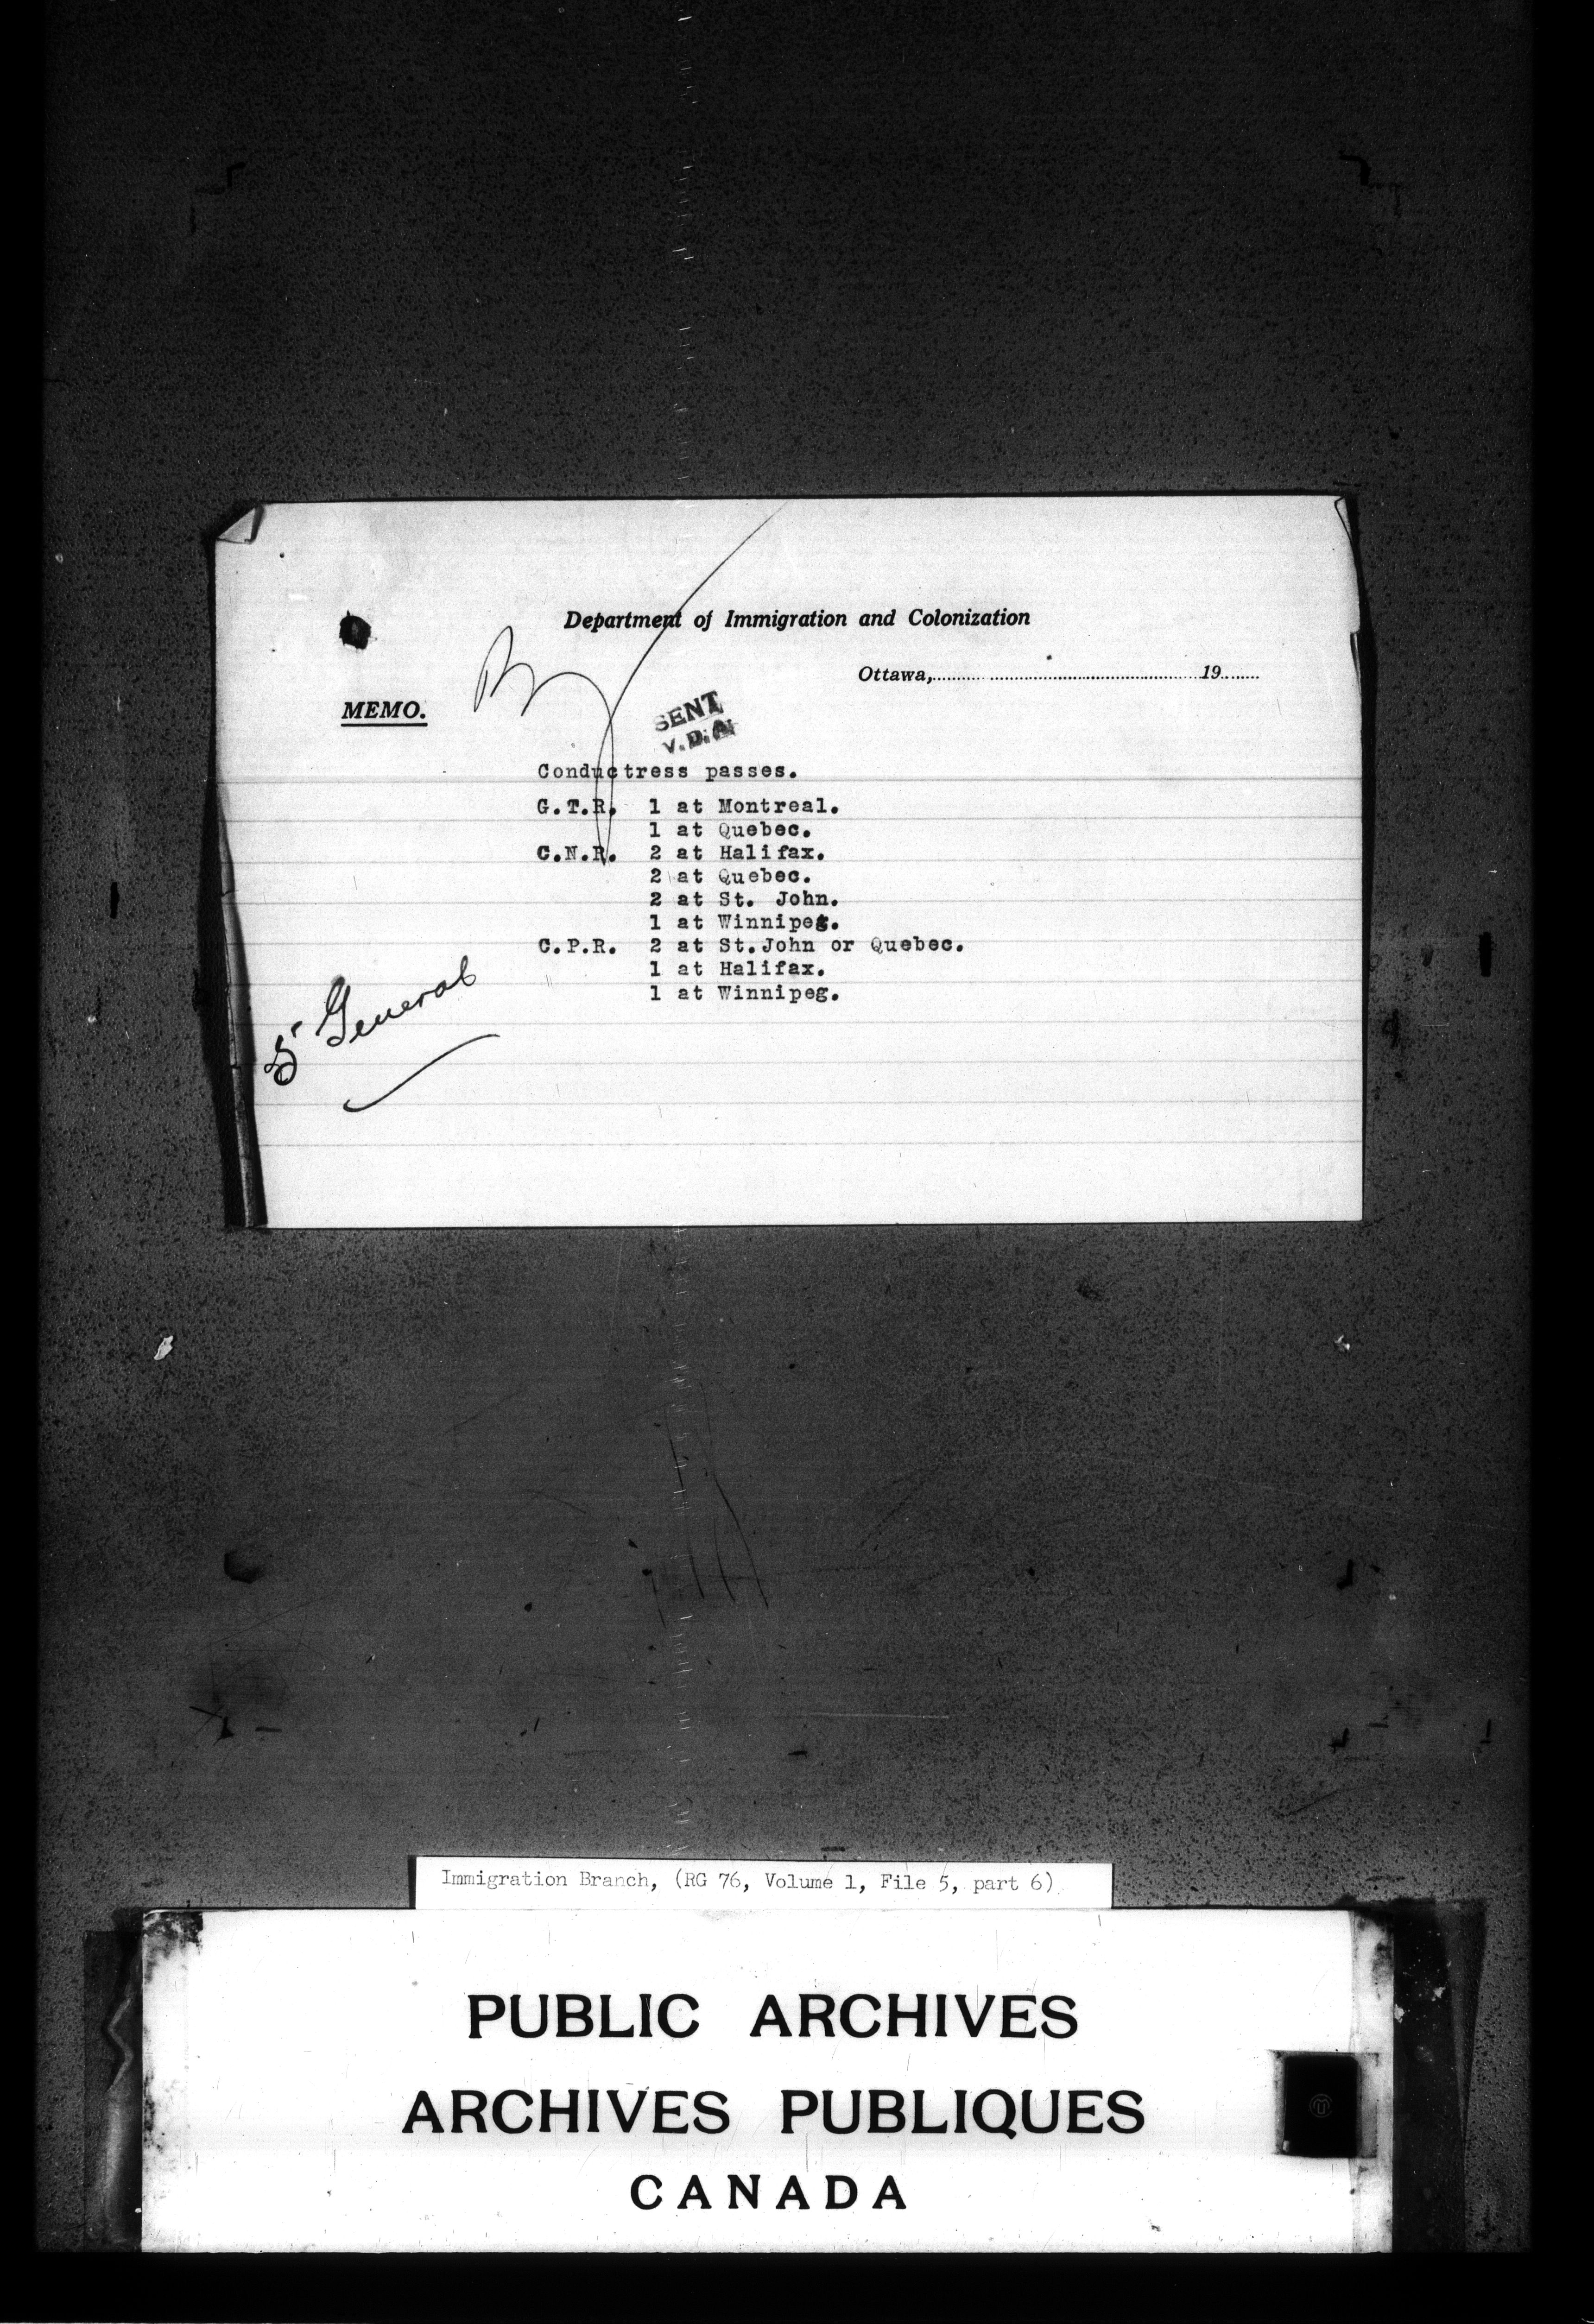 Department of Immigration and Colonization
Ottawa, 19
MEMO.
SENT
V.D.A
Conductress passes.
G.T.R. 1 at Montreal.
1 at Quebec.
C.N.R. 2 at Halifax.
2 at Quebec.
2 at St. John.
1 at Winnipeg.
C.P.R. 2 at St.John or Quebec.
1 at Halifax.
1 at Winnipeg.
5 General
Immigration Branch, (RG 76, Volume 1, File 5, part 6)
PUBLIC ARCHIVES
ARCHIVES PUBLIQUES
CANADA